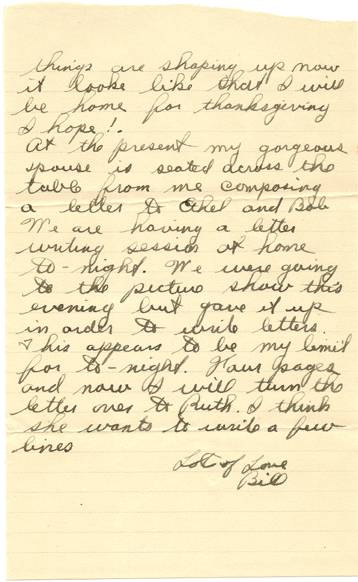 things are shaping up now
it looks like that I will
be home for thanksgiving
I hope!.
At the present my gorgeous
spouse is seated across the
table from me composing
a letter to Ethel and Bob
We are having a letter
writing session at home
to-night. We were going
to the picture show this
evening but gave it up
in order to write letters.
This appears to be my limit
for to-night. Four pages
and now I will turn the
letter over to Ruth. I think
she wants to write a few
lines
Lot of Love
Bill